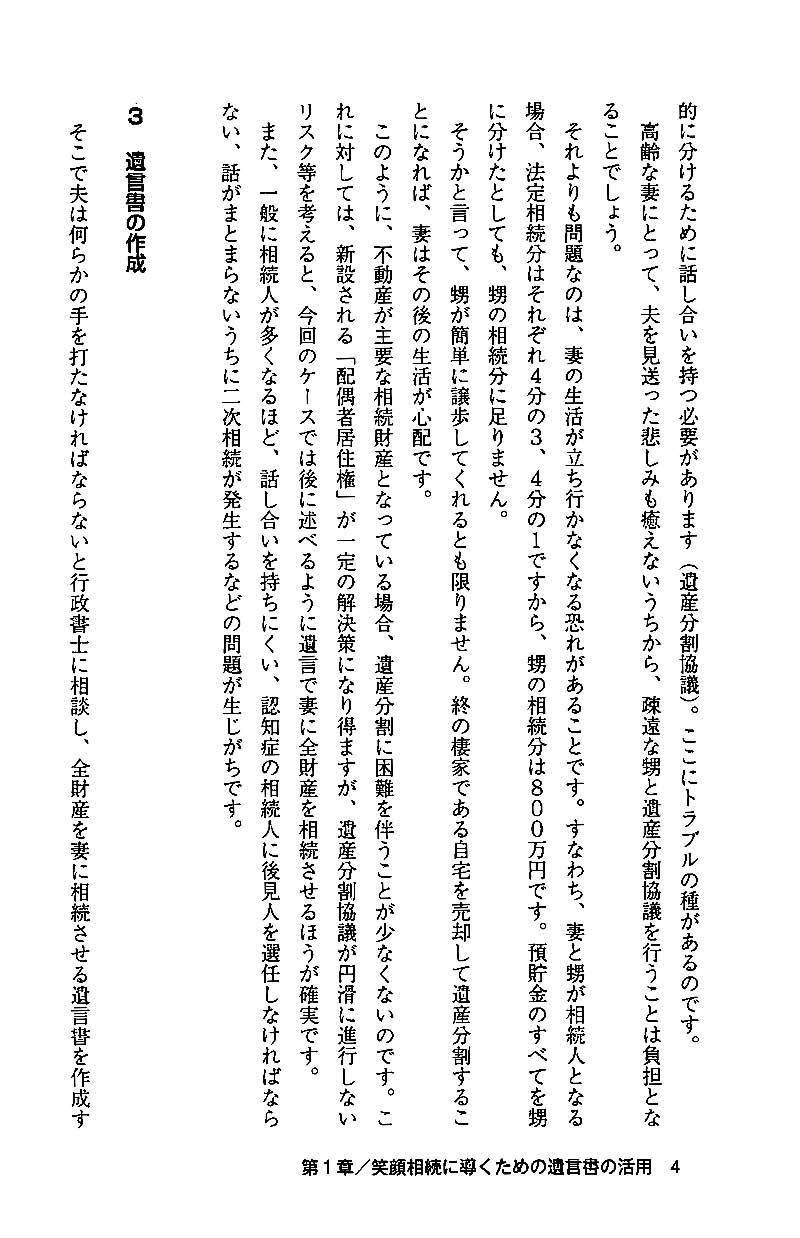 的に分けるために話し合いを持つ必要があります（遺産分割協議）。ここにトラブルの種があるのです。
高齢な妻にとって、夫を見送った悲しみも癒えないうちから、疎遠な甥と遺産分割協議を行うことは負担とな
ることでしょう。
それよりも問題なのは、妻の生活が立ち行かなくなる恐れがあることです。すなわち、妻と甥が相続人となる
場合、法定相続分はそれぞれ４分の３、４分の１ですから、甥の相続分は８００万円です。預貯金のすべてを甥
に分けたとしても、甥の相続分に足りません。
そうかと言って、甥が簡単に譲歩してくれるとも限りません。終の棲家である自宅を売却して遺産分割するこ
とになれば、妻はその後の生活が心配です。
このように、不動産が主要な相続財産となっている場合、遺産分割に困難を伴うことが少なくないのです。こ
れに対しては、新設される「配偶者居住権」が一定の解決策になり得ますが、遺産分割協議が円滑に進行しない
リスク等を考えると、今回のケースでは後に述べるように遺言で妻に全財産を相続させるほうが確実です。
また、一般に相続人が多くなるほど、話し合いを持ちにくい、認知症の相続人に後見人を選任しなければなら
ない、話がまとまらないうちに二次相続が発生するなどの問題が生じがちです。
３　遺言書の作成
そこで夫は何らかの手を打たなければならないと行政書士に相談し、全財産を妻に相続させる遺言書を作成す
第１章／笑顔相続に導くための遺言書の活用　4